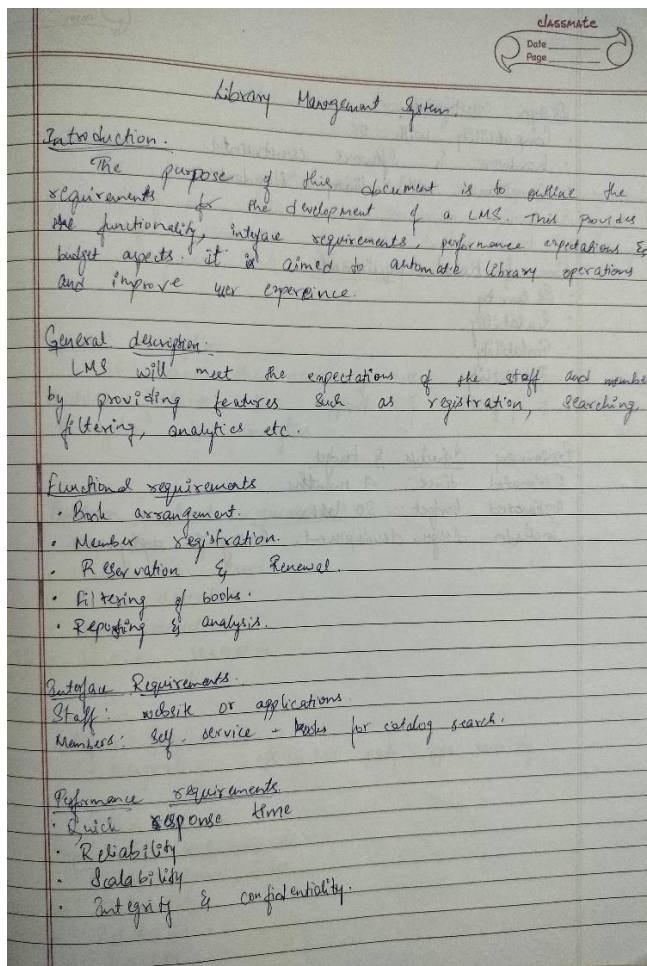 classmate
Date
Page
Library Management System.
Introduction.
The purpose of this document is to outline the
requirements for the development of a LMS. This provides
the functionality, interface requirements, performance expectations &
budget aspects. it is aimed to automate library operations
and improve user expereince.
General description.
LMS will meet the expectations of the staff and membe
by providing features such as registration, searching,
filtering, analytics etc.
Functional requirements
• Book arrangement.
• Member registration.
• Reservation & Renewal.
• Filtering of books.
• Reporting & analysis.
Interface Requirements.
Staff: website or applications.
Members: Self-service - for catalog search.
Performance requirements.
• Quick response time
• Reliability
• Scalability
• Integrity & confidentiality.